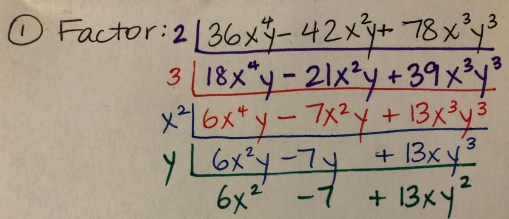 ① Factor: 2 36x⁴y - 42x²y + 78x³y³
3 18x⁴y - 21x²y + 39x³y³
x² 6x⁴y - 7x²y + 13x³y³
y 6x²y - 7y + 13xy³
6x² - 7 + 13xy²